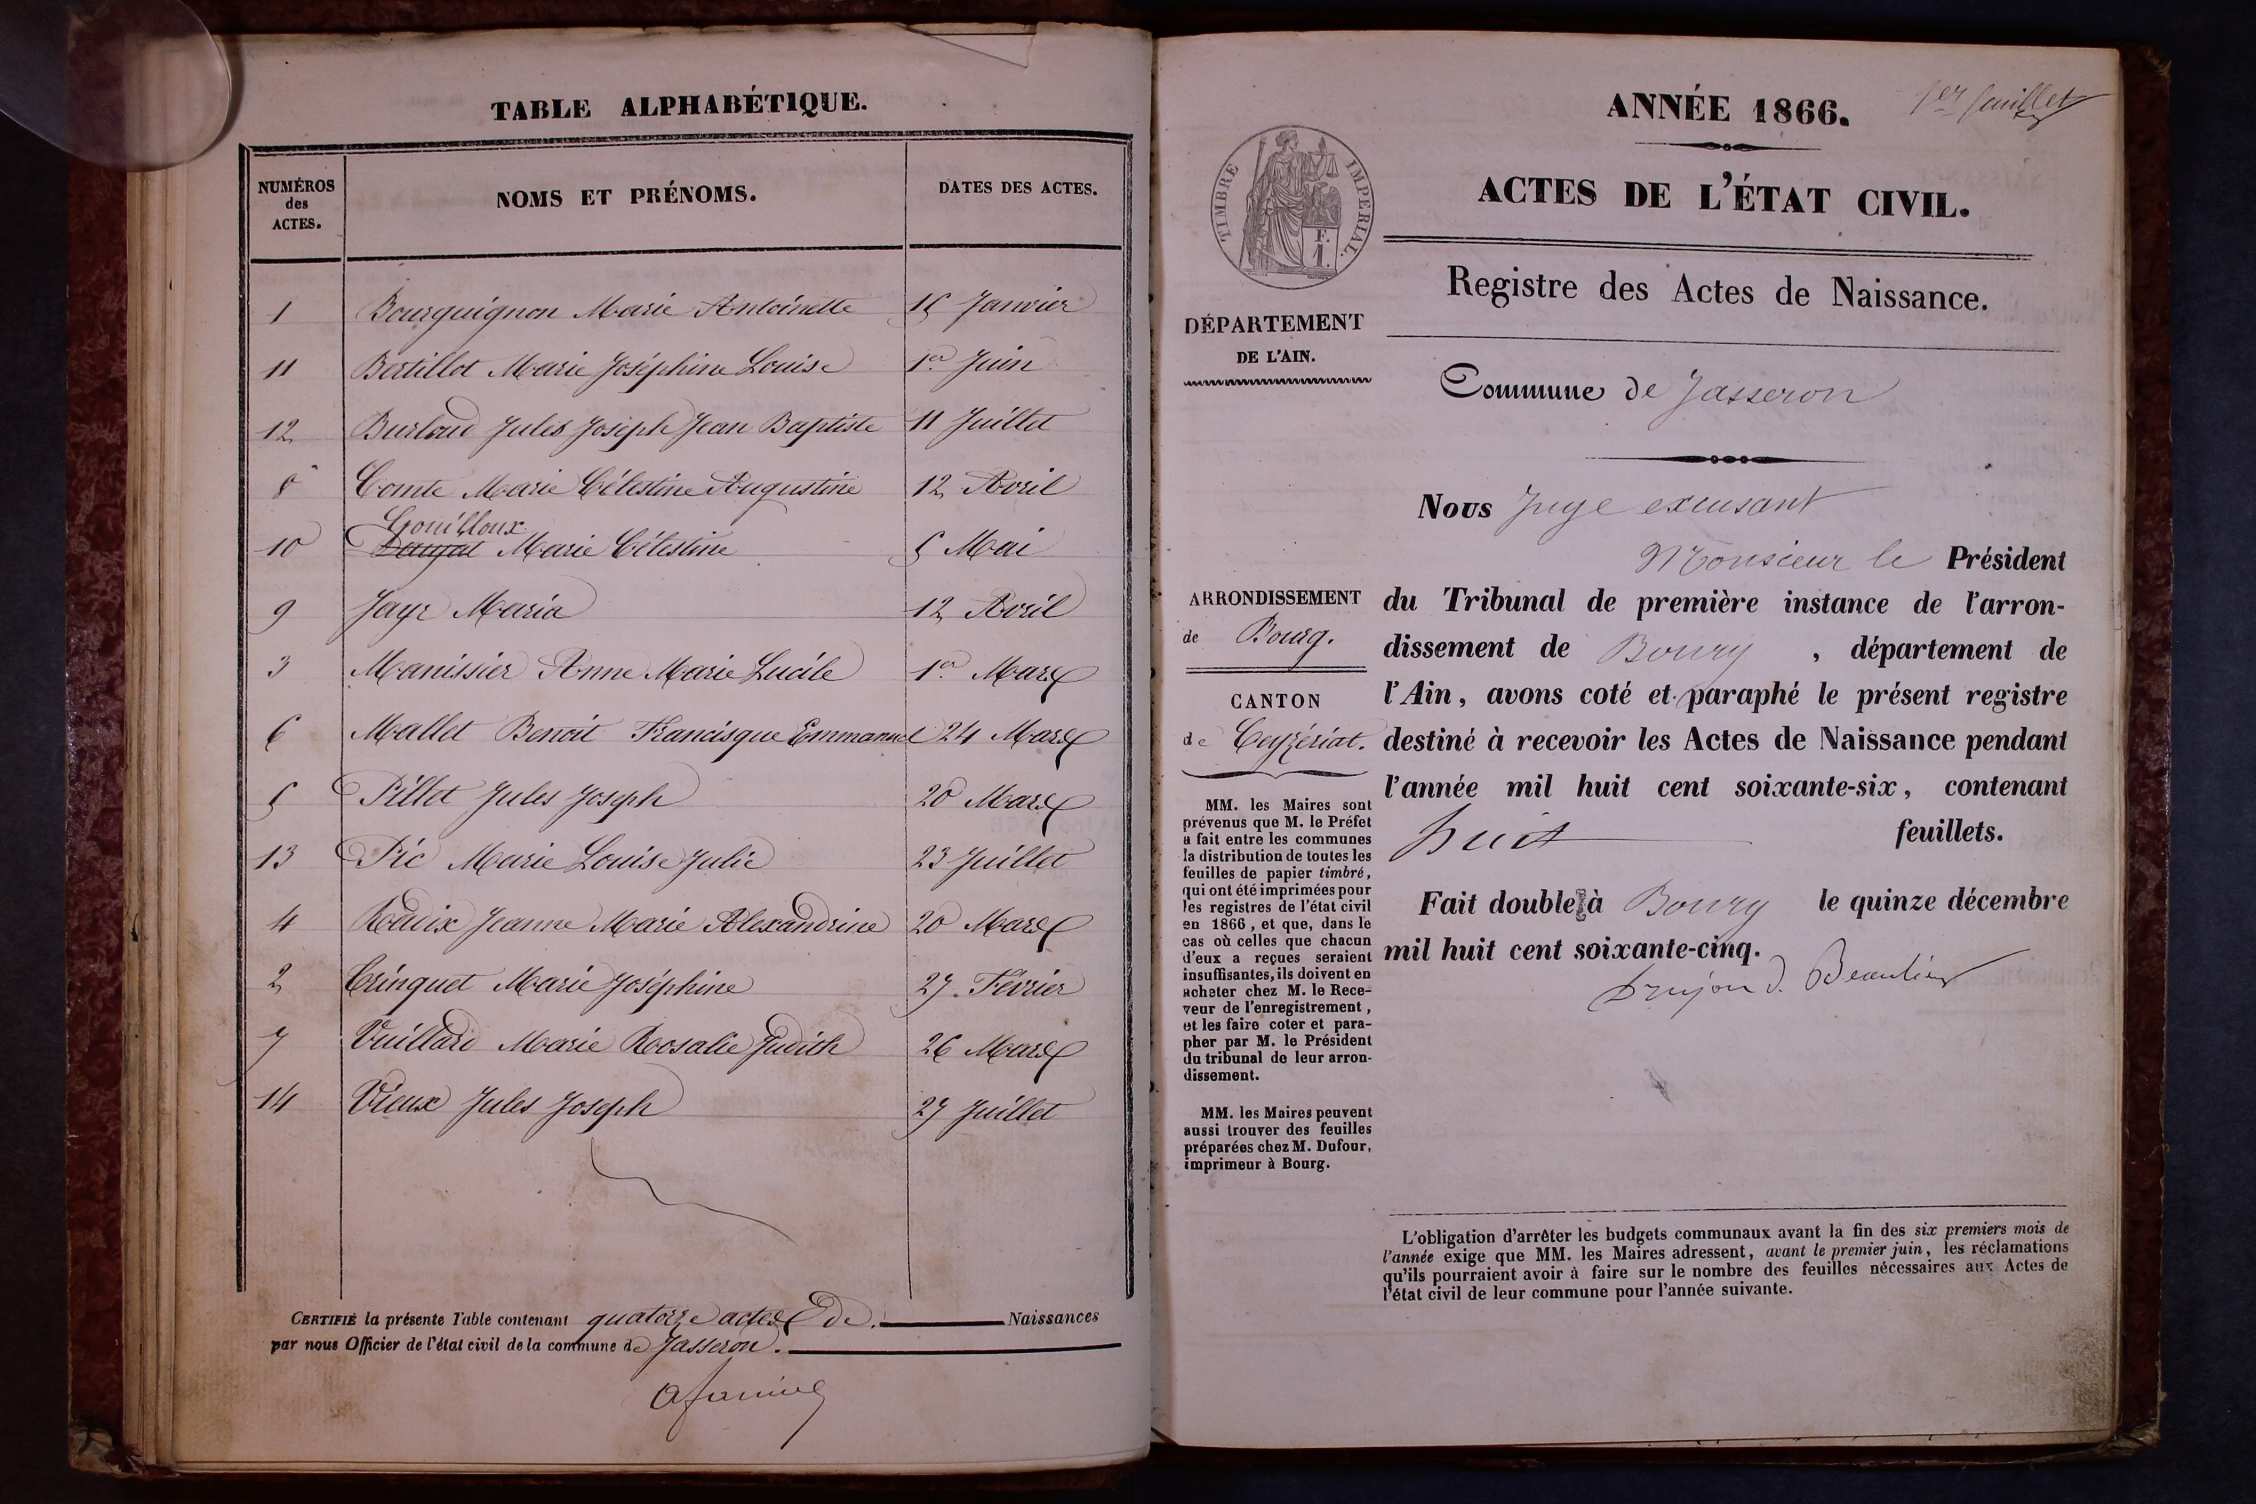 TABLE ALPHABÉTIQUE.
NUMÉROS des ACTES. NOMS ET PRÉNOMS. DATES DES ACTES.
1 Bourguignon Marie Antoinette 15 Janvier
11 Bertillot Marie Joséphine Louise 1er Juin
12 Burloud Jules Joseph Jean Baptiste 11 Juillet
8 Comte Marie Célestine Augustine 12 Avril
Gouilloux
10 Marie Célestine 5 Mai
9 Jayr Maria 12 Avril
3 Manissier Anne Marie Lucile 1er Mars
6 Mallet Benoit Francisque Emmanuel 24 Mars
5 Pillot Jules Joseph 20 Mars
13 Pic Marie Louise Julie 23 Juillet
4 Ravix Jeanne Marie Alexandrine 20 Mars
2 Cringuet Marie Joséphine 27 Février
7 Vuillard Marie Rosalie Judith 26 Mars
14 Vieux Jules Joseph 27 Juillet
CERTIFIÉ la présente Table contenant quatorze actes de Naissances
par nous Officier de l'état civil de la commune de Jasseron.
1er feuillet
ANNÉE 1866.
ACTES DE L'ÉTAT CIVIL.
TIMBRE IMPERIAL.
F.
1.
Registre des Actes de Naissance.
DÉPARTEMENT
DE L'AIN.
Commune de Jasseron
Nous Juge excusant
Monsieur le Président
du Tribunal de première instance de l'arron-
dissement de Bourg, département de
l'Ain, avons coté et paraphé le présent registre
destiné à recevoir les Actes de Naissance pendant
l'année mil huit cent soixante-six, contenant
huit feuillets.
Fait double à Bourg le quinze décembre
mil huit cent soixante-cinq.
Beaulieu
ARRONDISSEMENT
de Bourg.
CANTON
de Ceyzériat.
MM. les Maires sont
prévenus que M. le Préfet
a fait entre les communes
la distribution de toutes les
feuilles de papier timbré,
qui ont été imprimées pour
les registres de l'état civil
en 1866, et que, dans le
cas où celles que chacun
d'eux a reçues seraient
insuffisantes, ils doivent en
acheter chez M. le Rece-
veur de l'enregistrement,
et les faire coter et para-
pher par M. le Président
du tribunal de leur arron-
dissement.
MM. les Maires peuvent
aussi trouver des feuilles
préparées chez M. Dufour,
imprimeur à Bourg.
L'obligation d'arrêter les budgets communaux avant la fin des six premiers mois de
l'année exige que MM. les Maires adressent, avant le premier juin, les réclamations
qu'ils pourraient avoir à faire sur le nombre des feuilles nécessaires aux Actes de
l'état civil de leur commune pour l'année suivante.